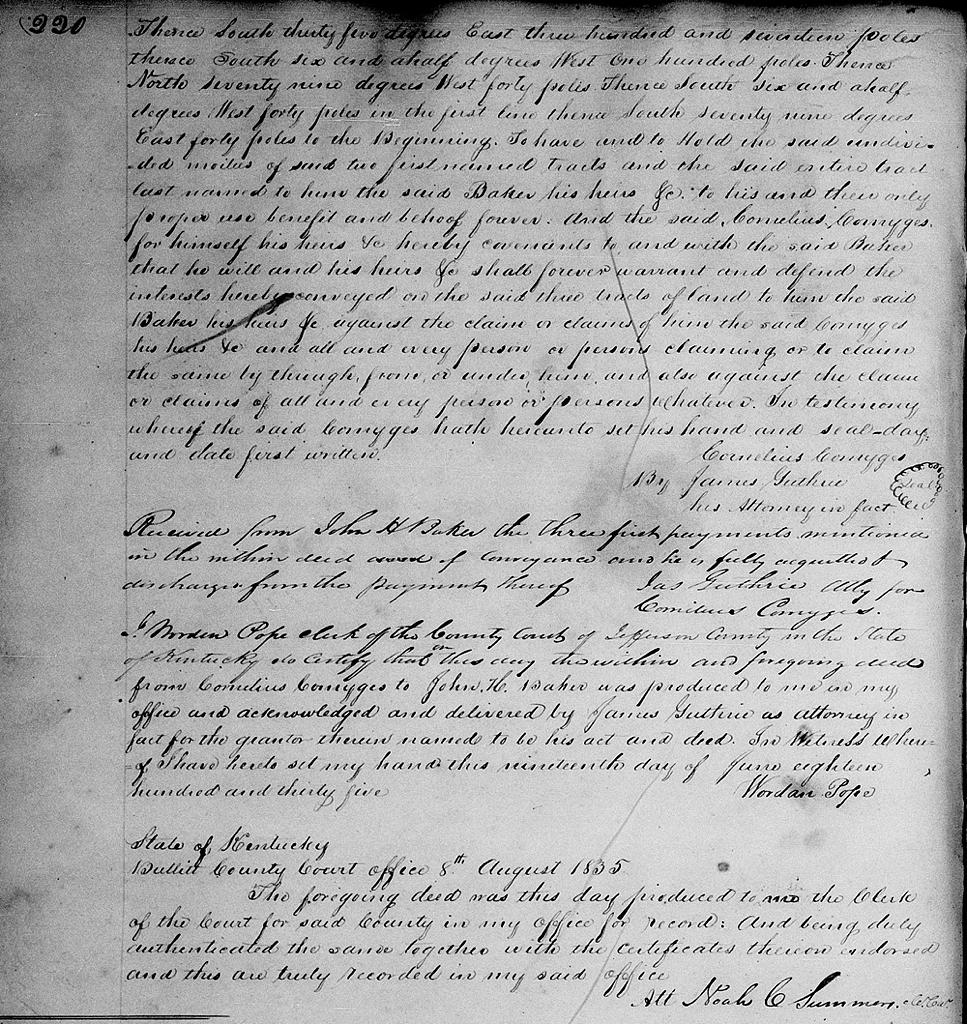 220
Thence South thirty five degrees East three hundred and seventeen poles
thence South six and ahalf degrees West One hundred poles. Thence
North seventy nine degrees West forty poles Thence South six and ahalf
degrees West forty poles in the first line thence South seventy nine degrees
East forty poles to the Beginning. To have and to Hold the said undivi-
-ded moities of said two first named tracts and the said entire tract
last named to him the said Baker his heirs &c. to his and their only
proper use benefit and behoof forever: And the said Cornelius Comyges
for himself his heirs &c hereby covenants to and with the said Baker
that he will and his heirs &c shall forever warrant and defend the
interests hereby conveyed on the said three tracts of land to him the said
Baker his heirs &c against the claim or claims of him the said Comyges
his heirs &c and all and every person or persons claiming or to claim
the same by through, from, or under, him, and also against the claim
or claims of all and every person or persons whatever. In testimony
whereof the said Comyges hath hereunto set his hand and seal day
and date first written.
Cornelius Comyges
By James Guthrie
his Attorney in fact
Seal
Received from John H Baker the three first payments mentioned
in the within deed of conveyance and he is fully acquitted &
discharged from the payment thereof
Jas Guthrie Atty for
Cornelius Comyges.
I. Worden Pope clerk of the County Court of Jefferson County in the State
of Kentucky do certify that on this day the within and foregoing deed
from Cornelius Comyges to John H. Baker was produced to me in my
office and acknowledged and delivered by James Guthrie as attorney in
fact for the grantor therein named to be his act and deed. In Witness Where-
-of I have hereto set my hand this nineteenth day of June eighteen
hundred and thirty five
Wordan Pope
State of Kentucky
Bullitt County Court office 8th August 1835
The foregoing deed was this day produced to me the Clerk
of the Court for said County in my office for record: And being duly
authenticated the same together with the certificates thereon endorsed
and this are truly recorded in my said office
Att Noah C Summers.